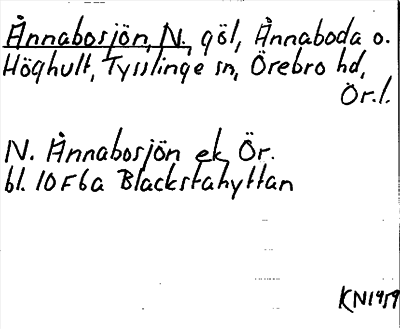 Ånnabosjön, N., göl, Ånnaboda o.
Höghult, Tysslinge sn, Örebro hd,
Ör.l.
N. Ånnabosjön ek. Ör.
bl. 10F6a Blackstahyttan
KN1959